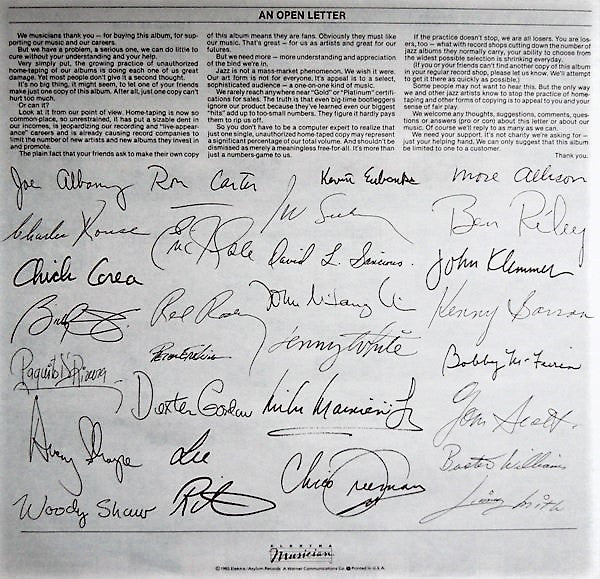 AN OPEN LETTER
We musicians thank you — for buying this album, for sup-
porting our music and our careers.
But we have a problem, a serious one, we can do little to
cure without your understanding and your help.
Very simply put, the growing practice of unauthorized
home-taping of our albums is doing each one of us great
damage. Yet most people don't give it a second thought.
It's no big thing, it might seem, to let one of your friends
make just one copy of this album. After all, just one copy can't
hurt too much.
Or can it?
Look at it from our point of view. Home-taping is now so
common-place, so unrestrained, it has put a sizable dent in
our incomes, is jeopardizing our recording and "live-appear-
ance" careers and is already causing record companies to
limit the number of new artists and new albums they invest in
and promote.
The plain fact that your friends ask to make their own copy
of this album means they are fans. Obviously they must like
our music. That's great – for us as artists and great for our
futures.
But we need more – more understanding and appreciation
of the bind we're in.
Jazz is not a mass-market phenomenon. We wish it were.
Our art form is not for everyone. It's appeal is to a select,
sophisticated audience – a one-on-one kind of music.
We rarely reach anywhere near "Gold" or "Platinum" certifi-
cations for sales. The truth is that even big-time bootleggers
ignore our product because they've learned even our biggest
"hits" add up to too-small numbers. They figure it hardly pays
them to rip us off.
So you don't have to be a computer expert to realize that
just one single, unauthorized home-taped copy may represent
a significant percentage of our total volume. And shouldn't be
dismissed as merely a meaningless free-for-all. It's more than
just a numbers-game to us.
If the practice doesn't stop, we are all losers. You are los-
ers, too – what with record shops cutting down the number of
jazz albums they normally carry, your ability to choose from
the widest possible selection is shrinking everyday.
(If you or your friends can't find another copy of this album
in your regular record shop, please let us know. We'll attempt
to get it there as quickly as possible.)
Some people may not want to hear this. But the only way
we and other jazz artists know to stop the practice of home
taping and other forms of copying is to appeal to you and your
sense of fair play.
We welcome any thoughts, suggestions, comments, ques-
tions or answers (pro or con) about this letter or about our
music. Of course we'll reply to as many as we can.
We need your support. It's not charity we're asking for –
just your helping hand. We can only suggest that this album
be limited to one to a customer.
Thank you.
Joe Albany Ron Carter Kevin Eubanks Mose Allison
Charlie Rouse Ben Riley
Chick Corea David L. Sancious. John Klemmer
Red Rodney Kenny Barron
Paquito D'Rivera Peter Erskine Lenny White Bobby McFerrin
Dexter Gordon Mike Mainieri Jr Tom Scott.
Avery Sharpe Lee Buster Williams
Woody Shaw Rit Chico Freeman Jimmy Smith
ELEKTRA
Musician
© 1982 Elektra/Asylum Records A Warner Communications Co. Printed in U.S.A.